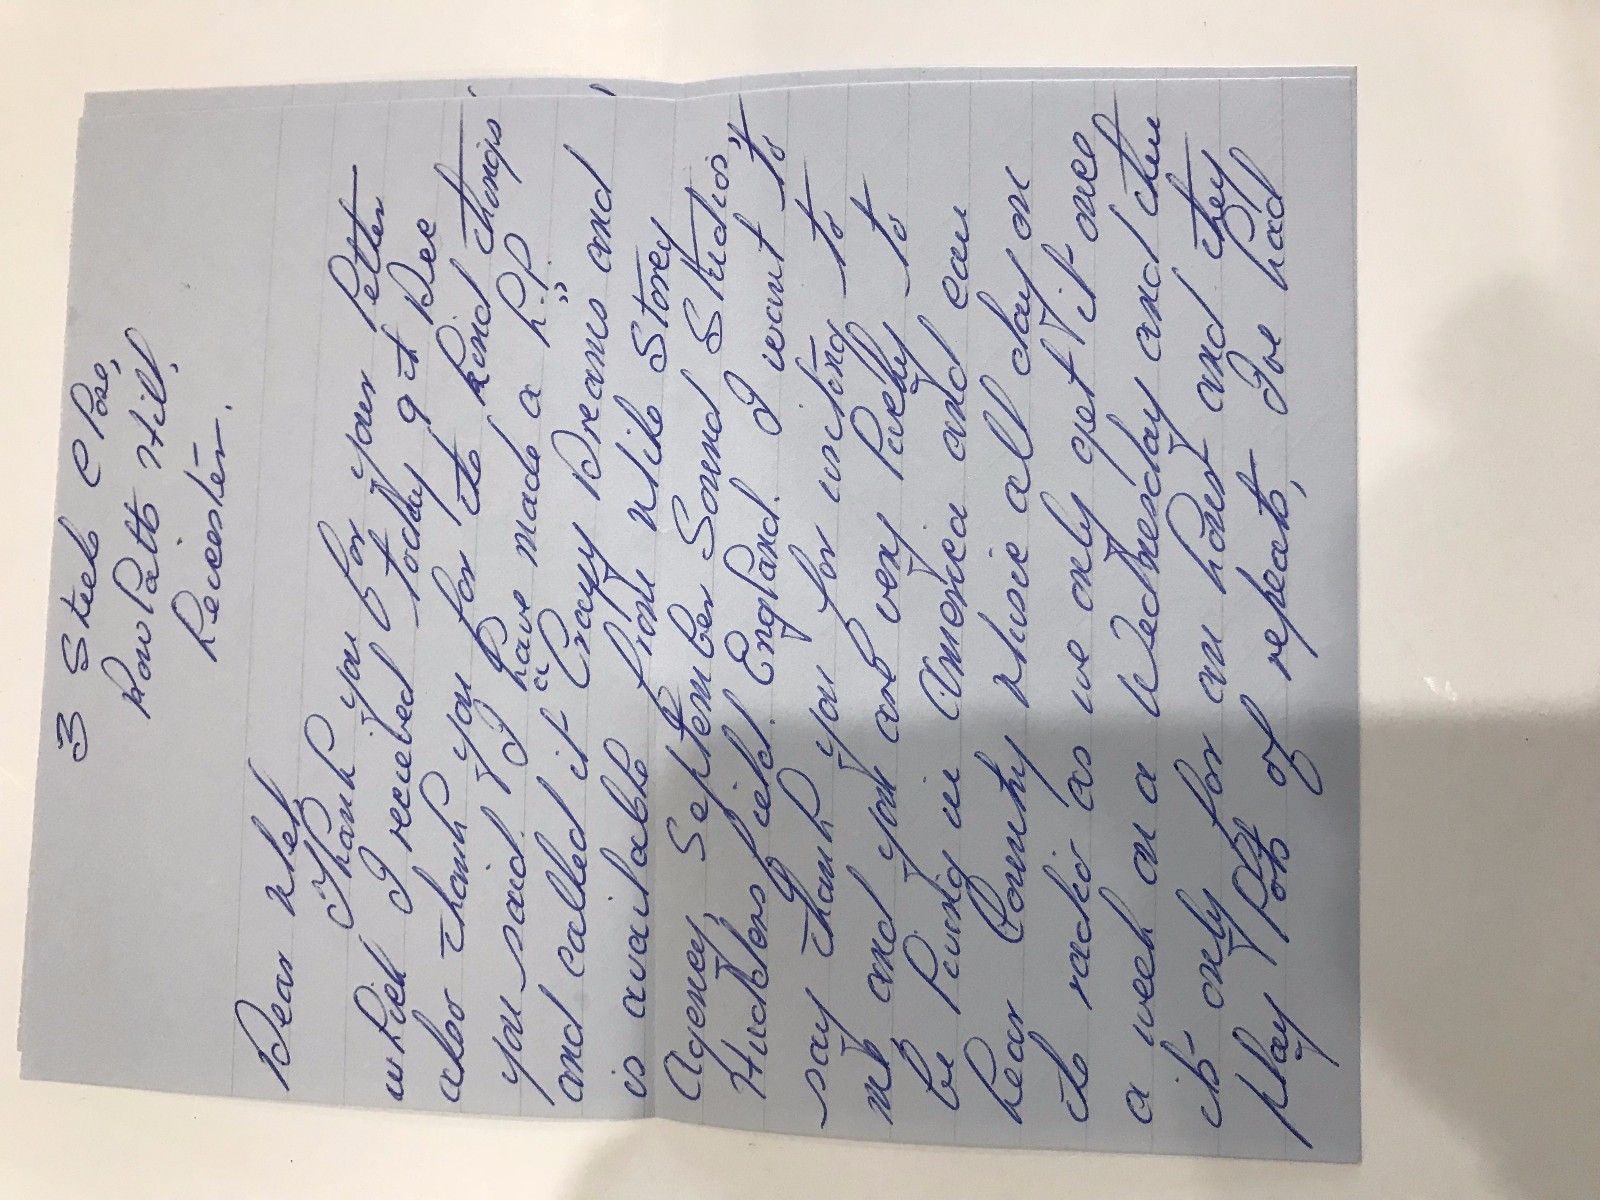 3 Steele Close,
Rowlatts Hill,
Leicester.
Dear Mel,
Thank you for your letter
which I recieved today 9th Dec
also thank you for the kind things
you said. I have made a L.P.
and called it "Crazy Dreams" and
is available from Mike Storey
Agency, September Sound Studios,
Huddersfield. England. I want to
say thank you for writing to
me and you are very lucky to
be living in America and can
hear Country Music all day on
the radio as we only get it once
a week on a Wednesday and then
it's only for an hour and they
play lots of repeats, I've had